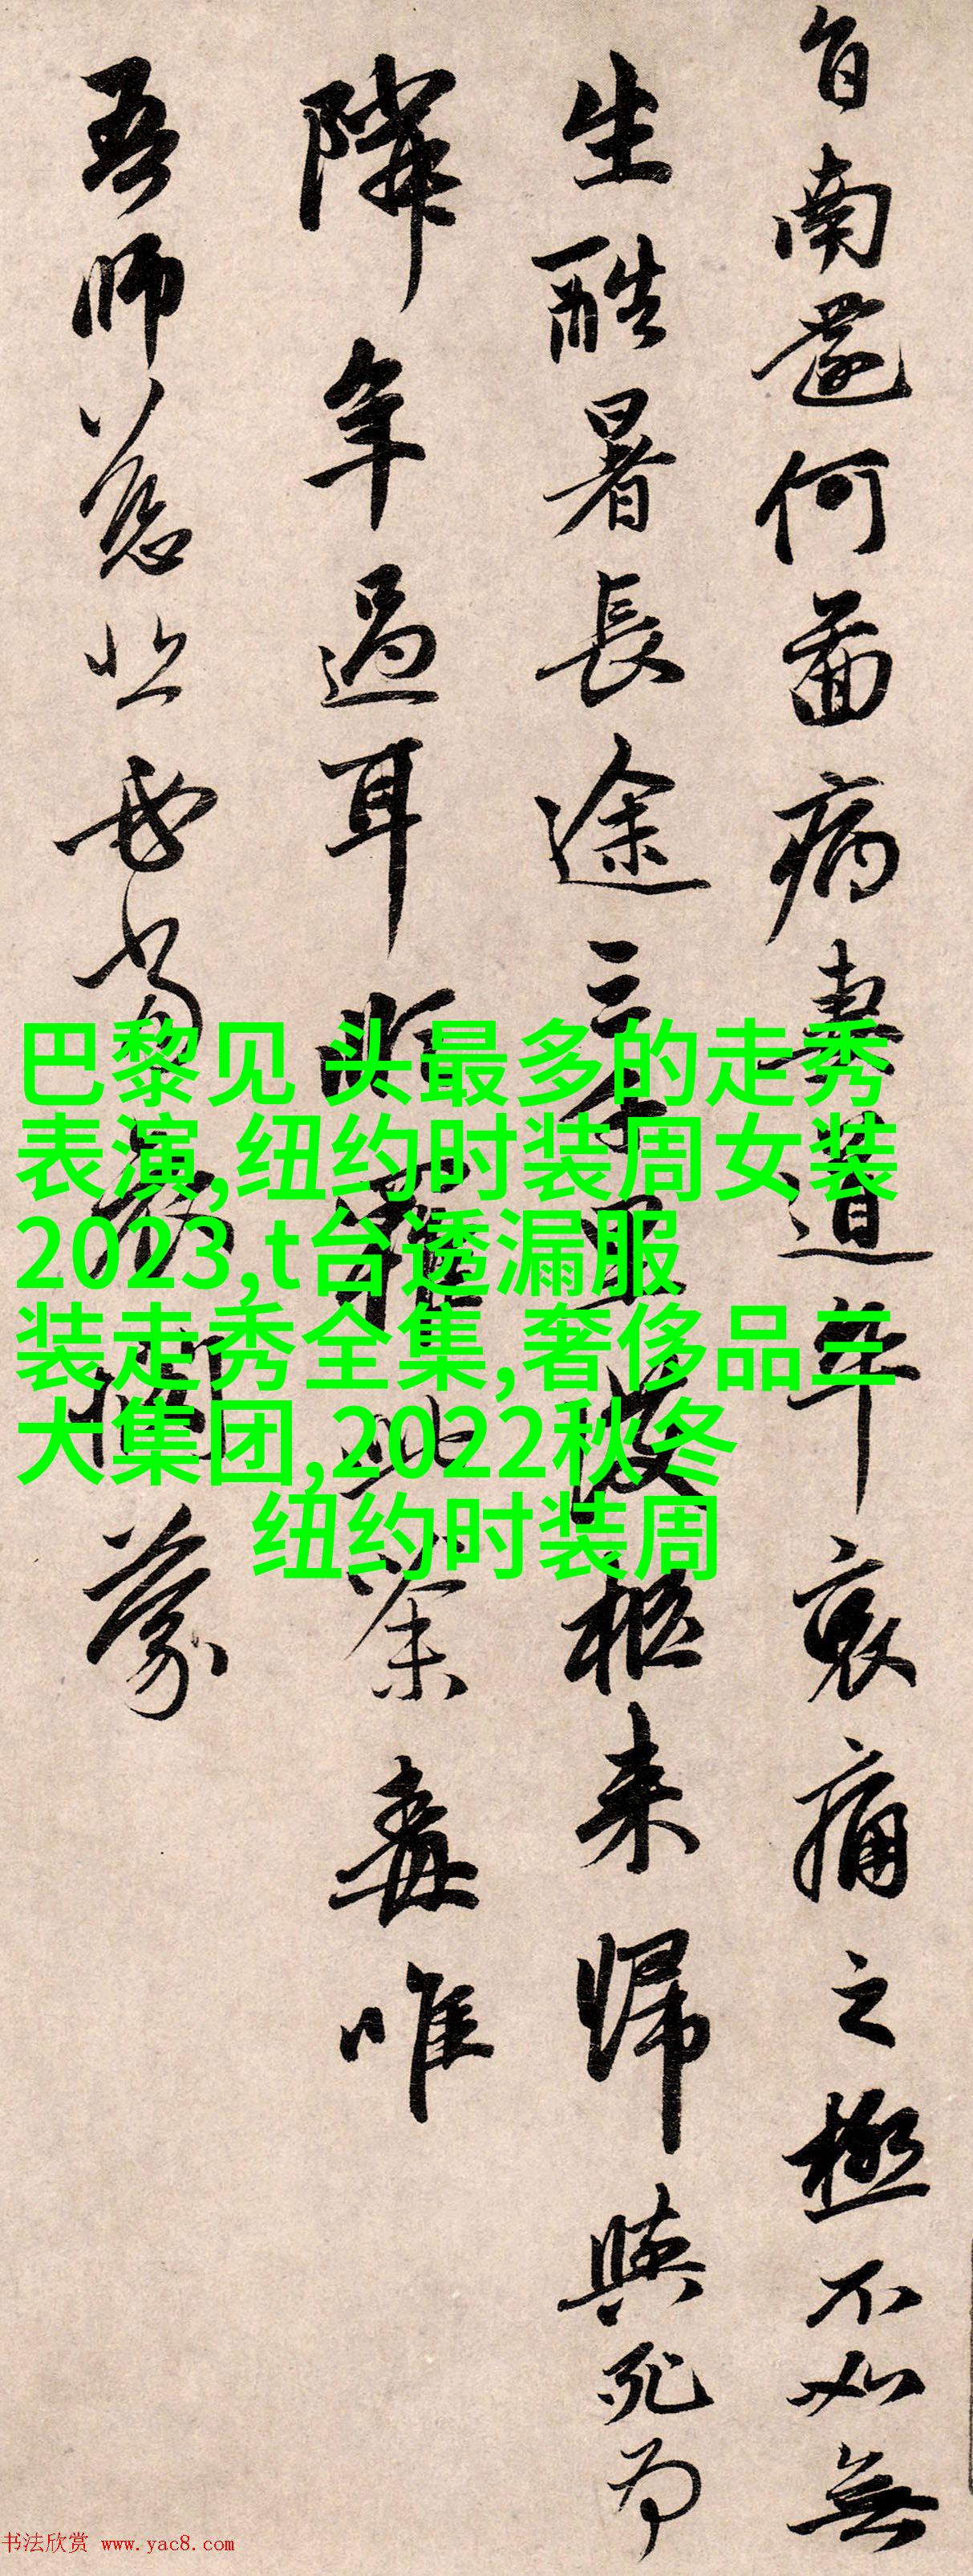 旨南還何啚病妻道卒哀痛之極不如無
生酷暑長途三千里護柩来歸與死為
隣年過耳順罹此荼毒唯
吾師慈當蒙
巴黎见 头最多的走秀
表演,纽约时装周女装
2023,t台透漏服
装走秀全集,奢侈品三
大集团,2022秋冬
纽约时装周
书法欣赏 www.yac8.com